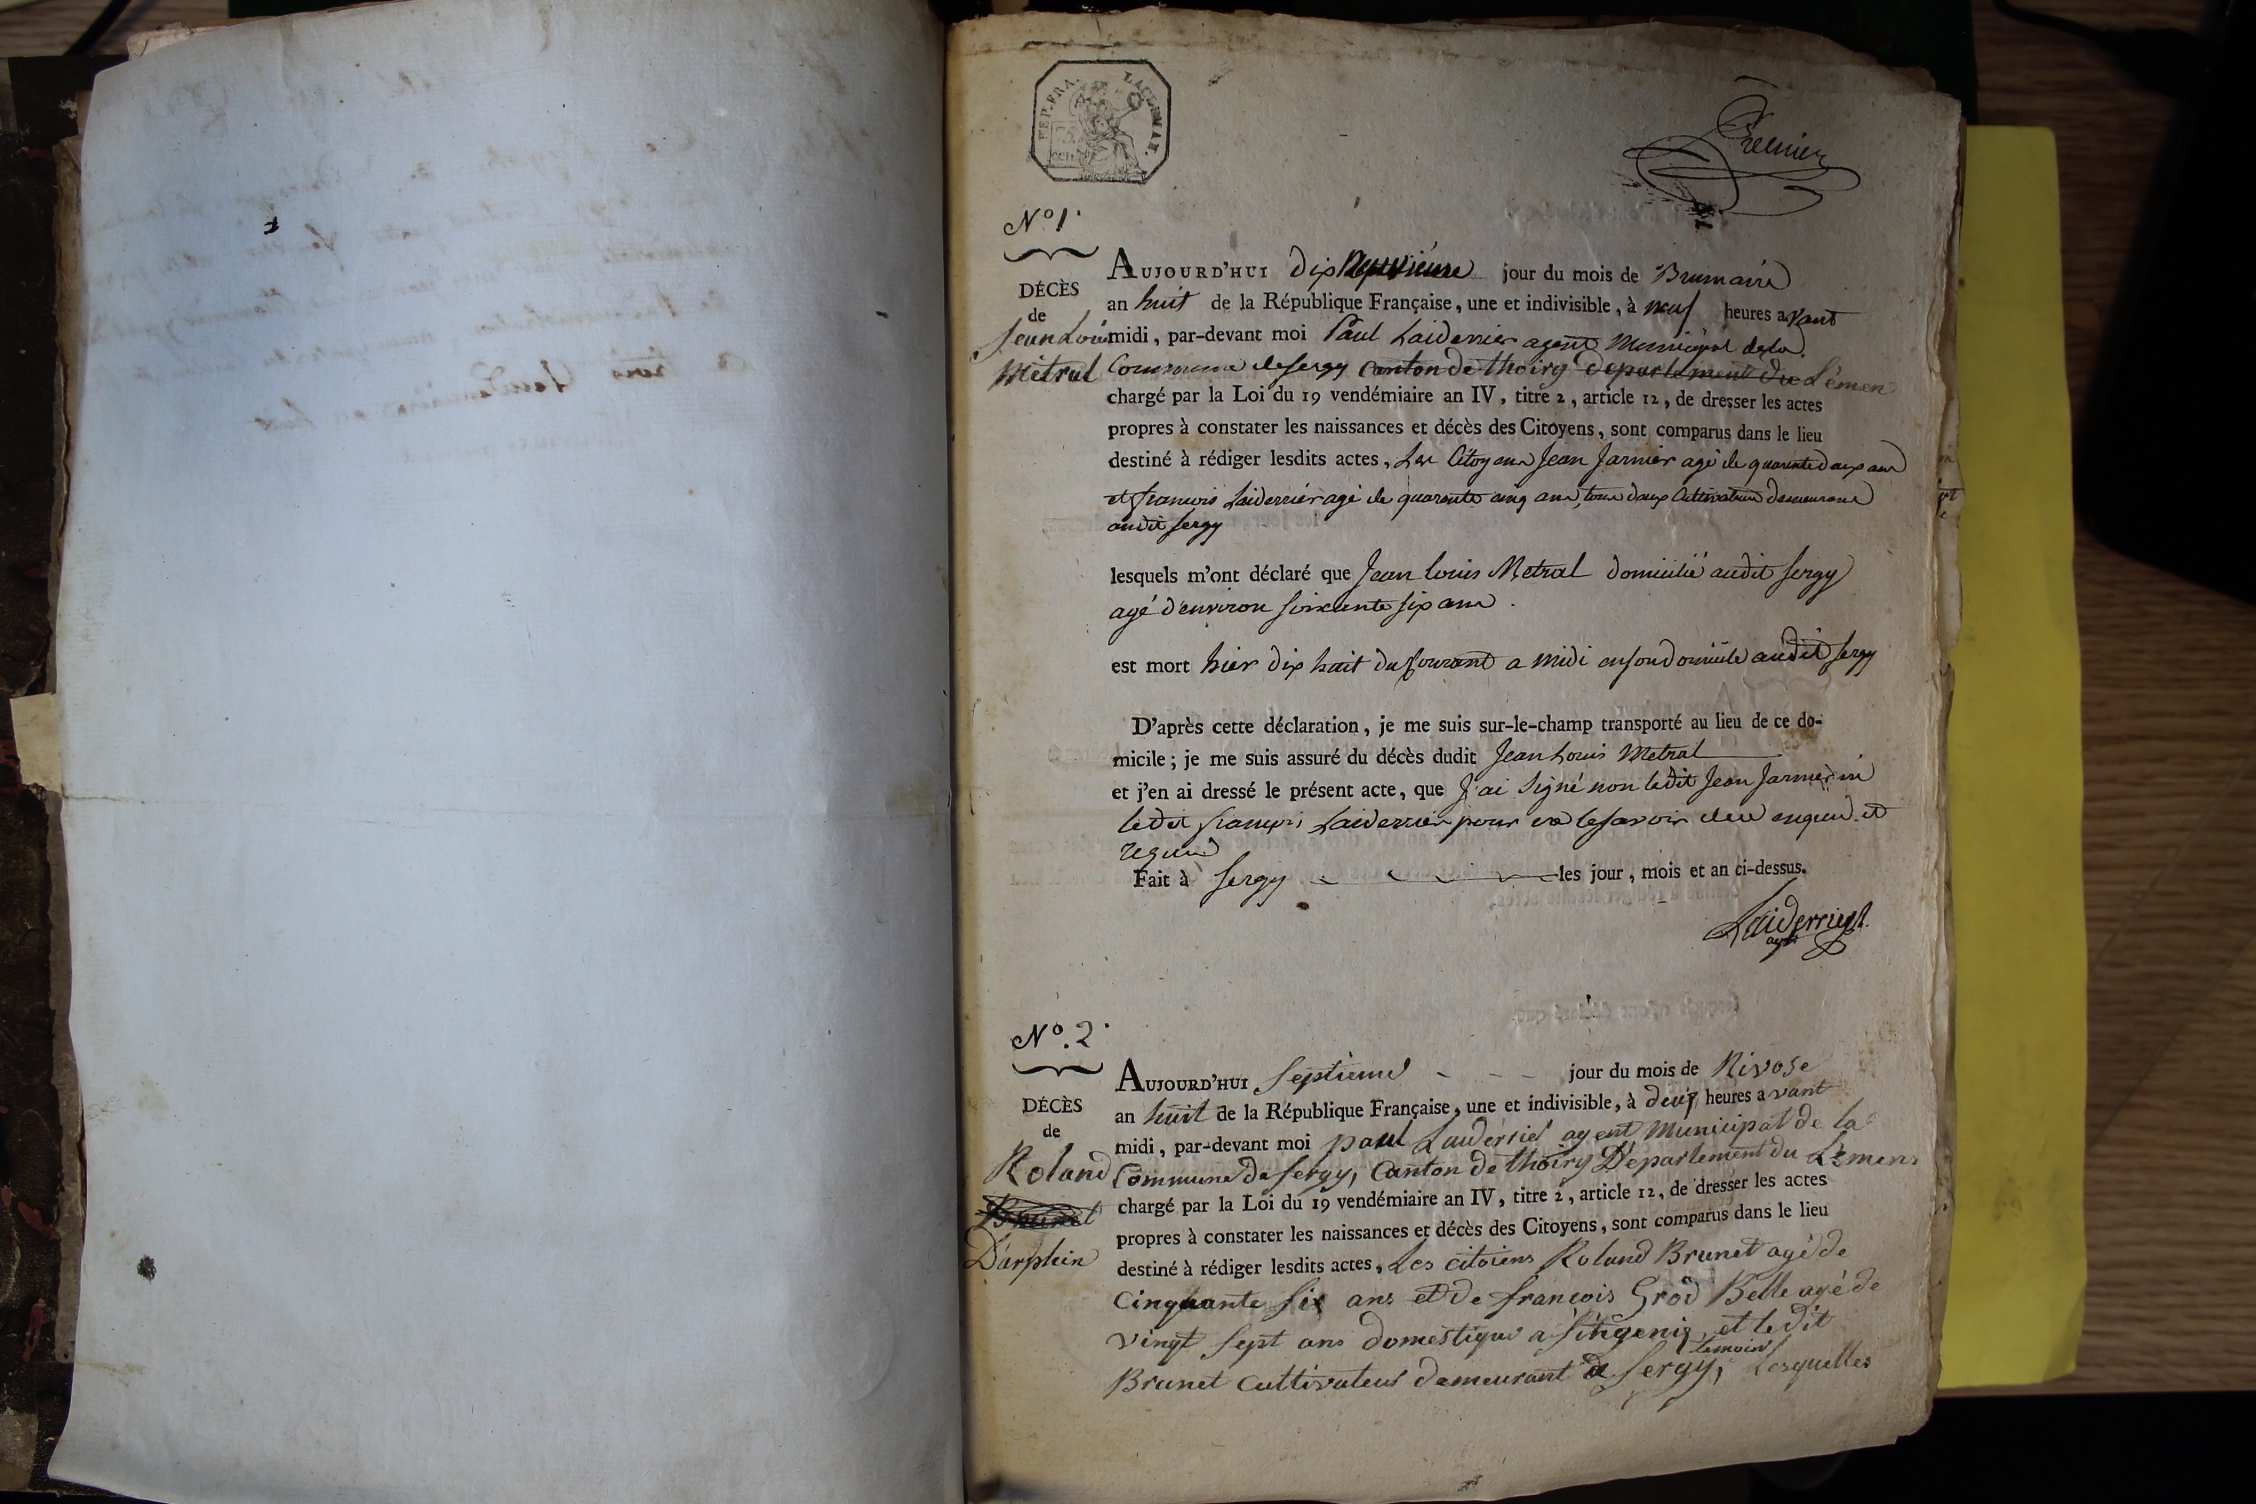 REP. FRA.
Premier
N.º 1.
AUJOURD'HUI dix Neuvième jour du mois de Brumaire
DÉCÈS
an huit de la République Française, une et indivisible, à neuf heures avant
de
Jean Louis
midi, par-devant moi Paul Laiderrier agent Municipal de la
Métral
Commune de Sergy Canton de Thoiry departement du Léman
chargé par la Loi du 19 vendémiaire an IV, titre 2, article 12, de dresser les actes
propres à constater les naissances et décès des Citoyens, sont comparus dans le lieu
destiné à rédiger lesdits actes, Les Citoyens Jean Jarnier agé de quarante deux ans
et françois Laiderrier agé de quarante cinq ans, tous deux Cultivateurs demeurans
audit Sergy
lesquels m'ont déclaré que Jean Louis Metral domicilié audit Sergy
agé d'environ soixante six ans.
est mort hier dix huit du Courant a midi en son domicile audit Sergy
D'après cette déclaration, je me suis sur-le-champ transporté au lieu de ce do-
micile; je me suis assuré du décès dudit Jean Louis Metral
et j'en ai dressé le présent acte, que J'ai Signé non ledit Jean Jarnier ni
ledit françois Laiderrier pour ne le savoir de ce enquis et
requis
Fait à Sergy les jour, mois et an ci-dessus.
Laiderrier
agt
N.º 2.
AUJOURD'HUI Septieme jour du mois de Nivose
DÉCÈS
an huit de la République Française, une et indivisible, à deux heures avant
de
midi, par-devant moi paul Laiderrier agent Municipal de la
Roland
Commune de Sergy, Canton de thoiry Département du Léman
Brunet
chargé par la Loi du 19 vendémiaire an IV, titre 2, article 12, de dresser les actes
propres à constater les naissances et décès des Citoyens, sont comparus dans le lieu
Darphin
destiné à rédiger lesdits actes, Les citoiens Roland Brunet agé de
Cinquante six ans et de françois Grod Belle agé de
vingt sept ans domestique a et le dit
temoins
Brunet Cultivateur demeurant a Sergy, Lesquelles